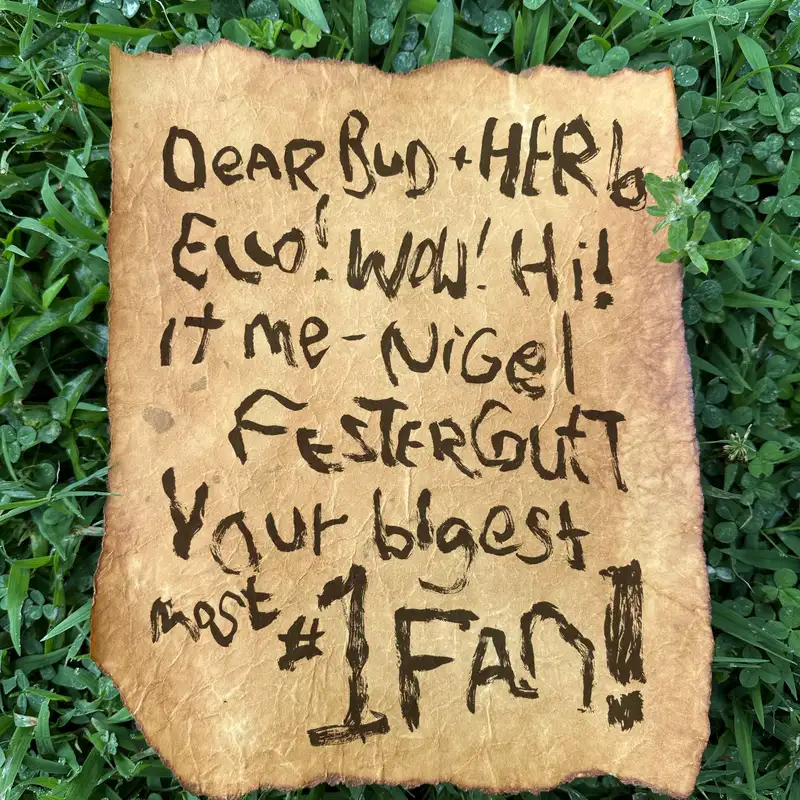 DeAR BuD + HERb
ELLO! WOW! Hi!
iT me - NiGel
FESTERGUTT
Your bigest
most #1 FAn!